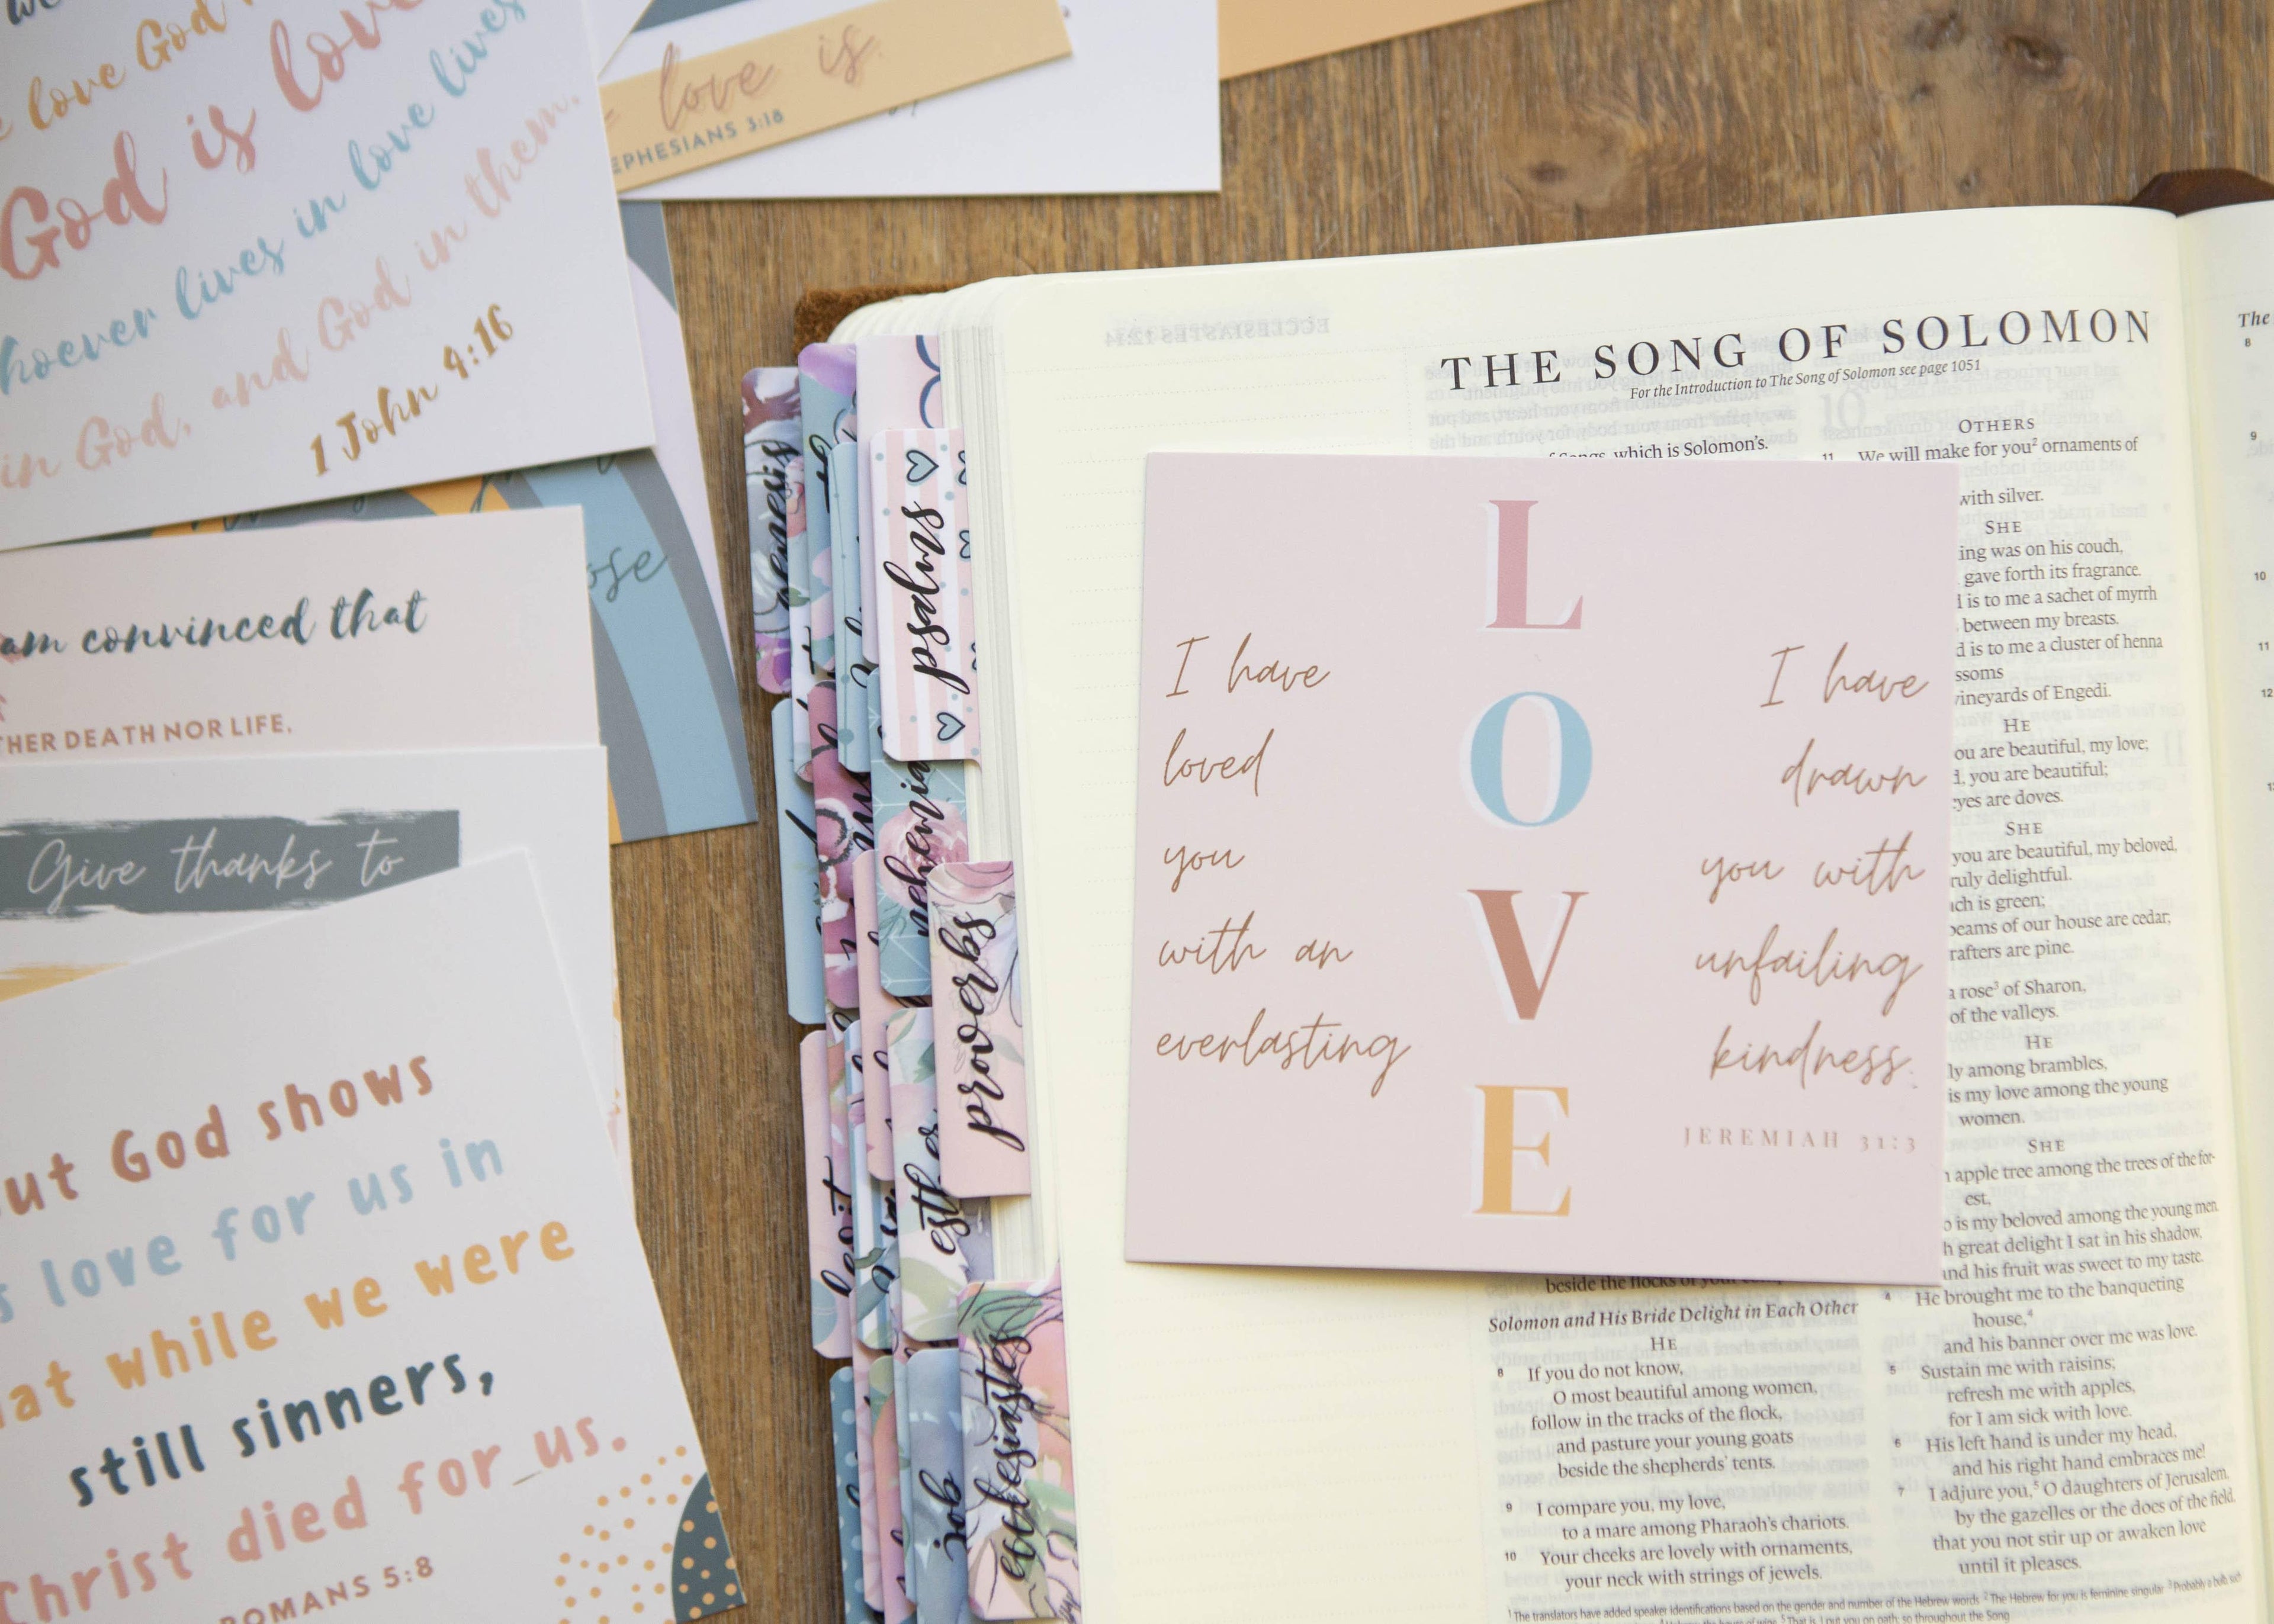 love God
God is love
hoever lives in love lives
in God, and God in them.
1 John 4:16
love is.
EPHESIANS 3:18
ose
am convinced that
HER DEATH NOR LIFE,
Give thanks to
ut God shows
s love for us in
at while we were
still sinners,
Christ died for us.
ROMANS 5:8
genesis
psalms
nehemia
proverbs
esther
job
ecclesiastes
ECCLESIASTES 12:14
THE SONG OF SOLOMON
For the Introduction to The Song of Solomon see page 1051
which is Solomon's.
LOVE
I have
loved
you
with an
everlasting
I have
drawn
you with
unfailing
kindness.
JEREMIAH 31:3
beside the flocks of your
Solomon and His Bride Delight in Each Other
HE
8 If you do not know,
O most beautiful among women,
follow in the tracks of the flock,
and pasture your young goats
beside the shepherds' tents.
9 I compare you, my love,
to a mare among Pharaoh's chariots.
10 Your cheeks are lovely with ornaments,
your neck with strings of jewels.
OTHERS
11 We will make for you² ornaments of
with silver.
SHE
ing was on his couch,
gave forth its fragrance.
is to me a sachet of myrrh
between my breasts.
d is to me a cluster of henna
ssoms
vineyards of Engedi.
HE
ou are beautiful, my love;
d, you are beautiful;
eyes are doves.
SHE
you are beautiful, my beloved,
ruly delightful.
uch is green;
beams of our house are cedar;
rafters are pine.
a rose³ of Sharon,
of the valleys.
HE
ly among brambles,
is my love among the young
women.
SHE
n apple tree among the trees of the for-
est,
o is my beloved among the young men.
h great delight I sat in his shadow,
and his fruit was sweet to my taste.
4 He brought me to the banqueting
house,⁴
and his banner over me was love.
5 Sustain me with raisins;
refresh me with apples,
for I am sick with love.
6 His left hand is under my head,
and his right hand embraces me!
7 I adjure you,⁵ O daughters of Jerusalem,
by the gazelles or the does of the field,
that you not stir up or awaken love
until it pleases.
¹ The translators have added speaker identifications based on the gender and number of the Hebrew words ² The Hebrew for you is feminine singular ³ Probably a bulb
⁵ That is, I put you on oath; so throughout the Song
The
8
9
10
11
12